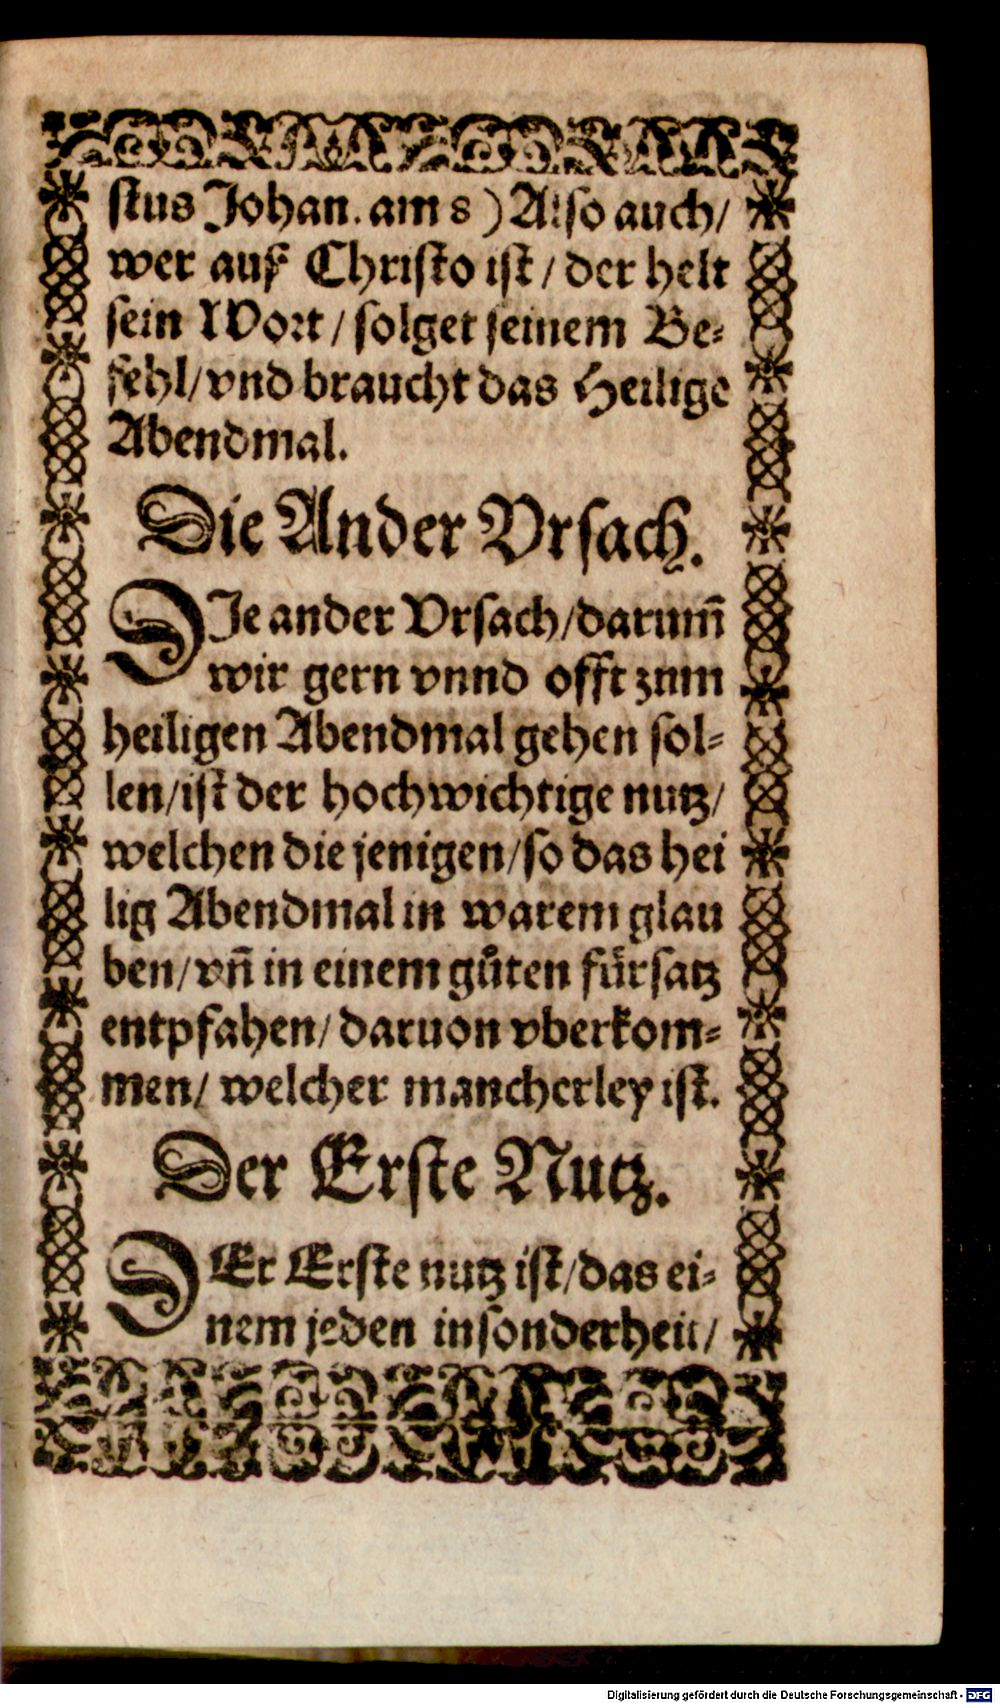 stus Johan. am 8) Also auch/
wer auß Christo ist/ der helt
sein Wort/ folget seinem Be-
fehl/ vnd braucht das Heilige
Abendmal.
Die Ander Vrsach.
DJe ander Vrsach/ darum̃
wir gern vnnd offt zum
heiligen Abendmal gehen sol-
len/ ist der hochwichtige nutz/
welchen die jenigen/ so das hei
lig Abendmal in warem glau
ben/ vñ in einem gůten fürsatz
entpfahen/ daruon vberkom-
men/ welcher mancherley ist.
Der Erste Nutz.
DEr Erste nutz ist/ das ei-
nem jeden insonderheit/
Digitalisierung gefördert durch die Deutsche Forschungsgemeinschaft - DFG